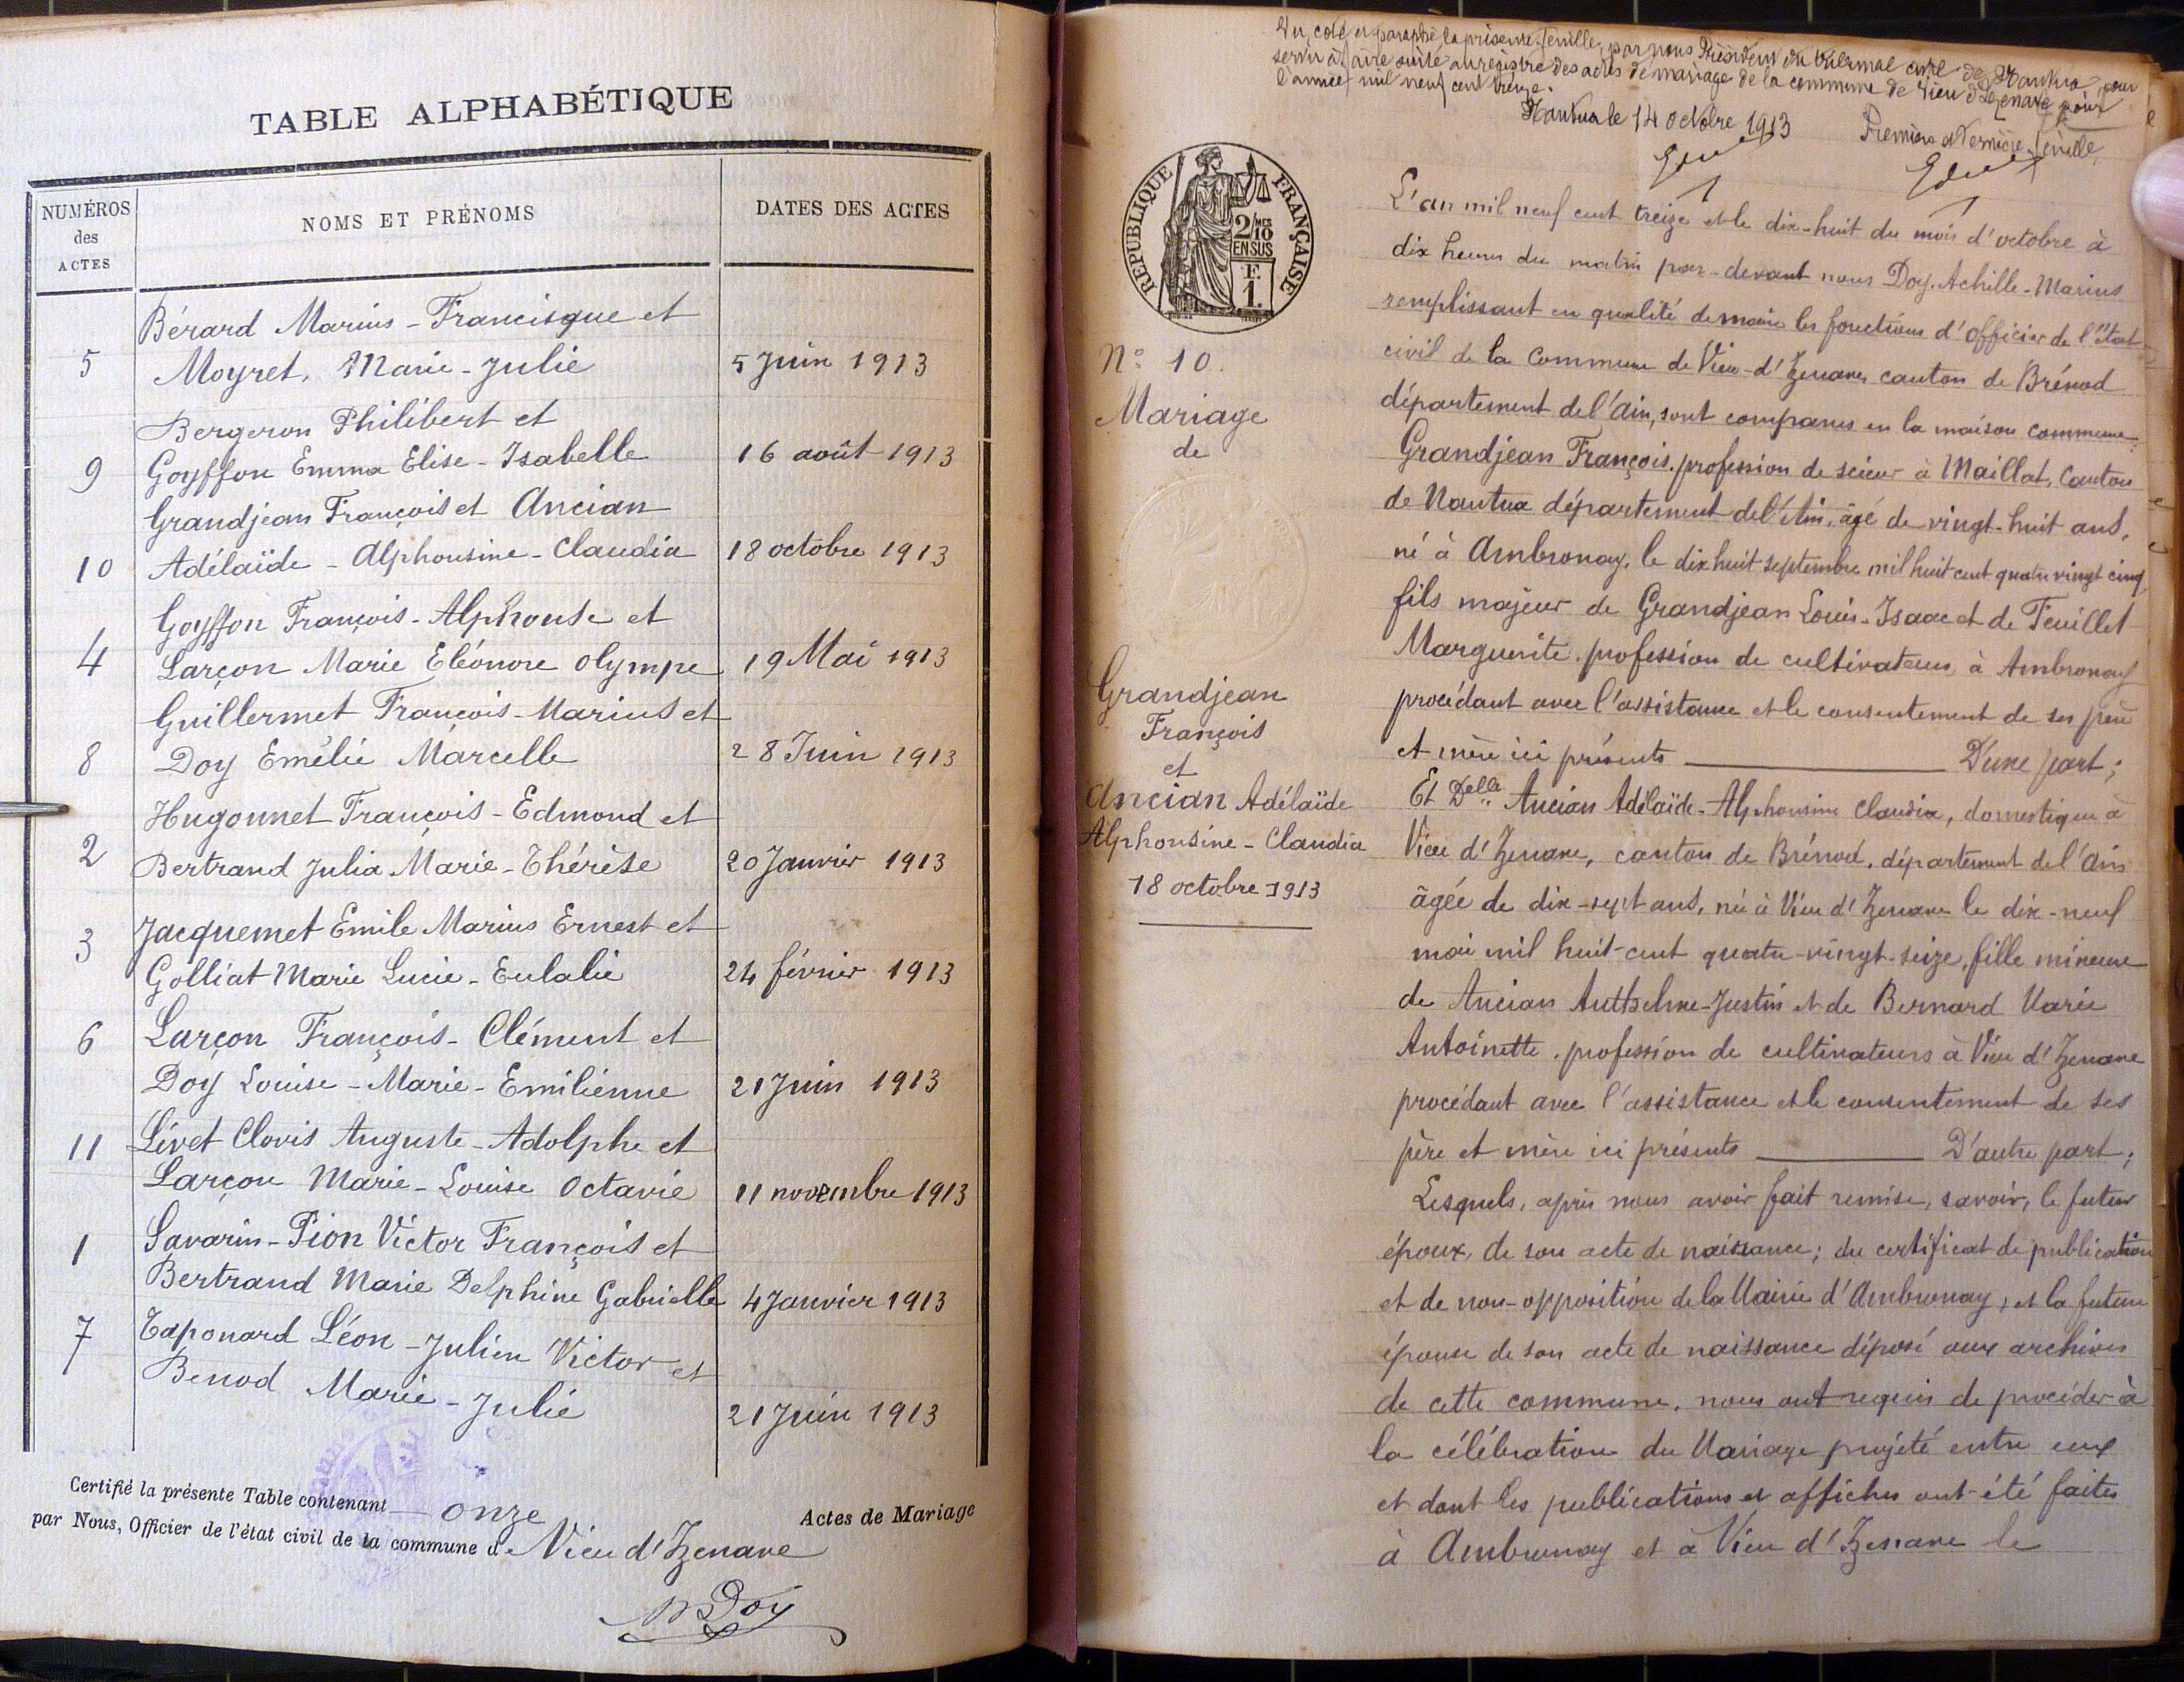 TABLE ALPHABÉTIQUE
NUMÉROS
des
ACTES
NOMS ET PRÉNOMS
DATES DES ACTES
Bérard Marius - Francisque et
5 Moyret, Marie - Julie 5 Juin 1913
Bergeron Philibert et
9 Goyffon Emma Elise - Isabelle 16 août 1913
Grandjean François et Ancian
10 Adélaïde - Alphonsine - Claudia 18 octobre 1913
Goyffon François - Alphonse et
4 Larçon Marie Eléonore Olympe 19 Mai 1913
Guillermet François - Marius et
8 Doy Emélie Marcelle 28 Juin 1913
Hugonnet François - Edmond et
2 Bertrand Julia Marie - Thérèse 20 Janvier 1913
3 Jacquemet Emile Marius Ernest et
Golliat Marie Lucie - Eulalie 24 février 1913
6 Larçon François - Clément et
Doy Louise - Marie - Emilienne 21 Juin 1913
11 Livet Clovis Auguste - Adolphe et
Larçon Marie - Louise Octavie 11 novembre 1913
1 Savarin - Pion Victor François et
Bertrand Marie Delphine Gabrielle 4 Janvier 1913
7 Taponard Léon - Julien Victor et
Benod Marie - Julie 21 Juin 1913
Certifié la présente Table contenant onze Actes de Mariage
par Nous, Officier de l'état civil de la commune d Vieu d'Izenave
Doy
Vu, coté et paraphé la présente feuille, par nous Président du tribunal civil de Nantua, pour
servir à faire suite au registre des actes de mariage de la commune de Vieu d'Izenave pour
l'année mil neuf cent treize.
Nantua le 14 octobre 1913
Première et Dernière feuille,
RÉPUBLIQUE FRANÇAISE
2/10
EN SUS
F.
1.
N° 10.
Mariage
de
Grandjean
François
et
Ancian Adélaïde
Alphonsine - Claudia
18 octobre 1913
L'an mil neuf cent treize et le dix-huit du mois d'octobre à
dix heures du matin par-devant nous Doy Achille-Marius
remplissant en qualité de maire les fonctions d'officier de l'état
civil de la commune de Vieu-d'Izenave canton de Brénod
département de l'Ain, sont comparus en la maison commune
Grandjean François, profession de scieur à Maillat, Canton
de Nantua département de l'Ain, âgé de vingt-huit ans,
né à Ambronay, le dix huit septembre mil huit cent quatre vingt cinq
fils majeur de Grandjean Louis-Isaac et de Feuillet
Marguerite, profession de cultivateurs à Ambronay
procédant avec l'assistance et le consentement de ses père
et mère ici présents D'une part;
Et Delle Ancian Adélaïde-Alphonsine Claudia, domestique à
Vieu d'Izenave, canton de Brénod, département de l'Ain
âgée de dix-sept ans, née à Vieu d'Izenave le dix-neuf
mai mil huit-cent quatre-vingt-seize, fille mineure
de Ancian Anthelme-Justin et de Bernard Marie
Antoinette, profession de cultivateurs à Vieu d'Izenave
procédant avec l'assistance et le consentement de ses
père et mère ici présents D'autre part;
Lesquels, après nous avoir fait remise, savoir, le futur
époux, de son acte de naissance; du certificat de publication
et de non-opposition de la Mairie d'Ambronay; et la future
épouse de son acte de naissance déposé aux archives
de cette commune, nous ont requis de procéder à
la célébration du Mariage projeté entre eux
et dont les publications et affiches ont été faites
à Ambronay et à Vieu d'Izenave le